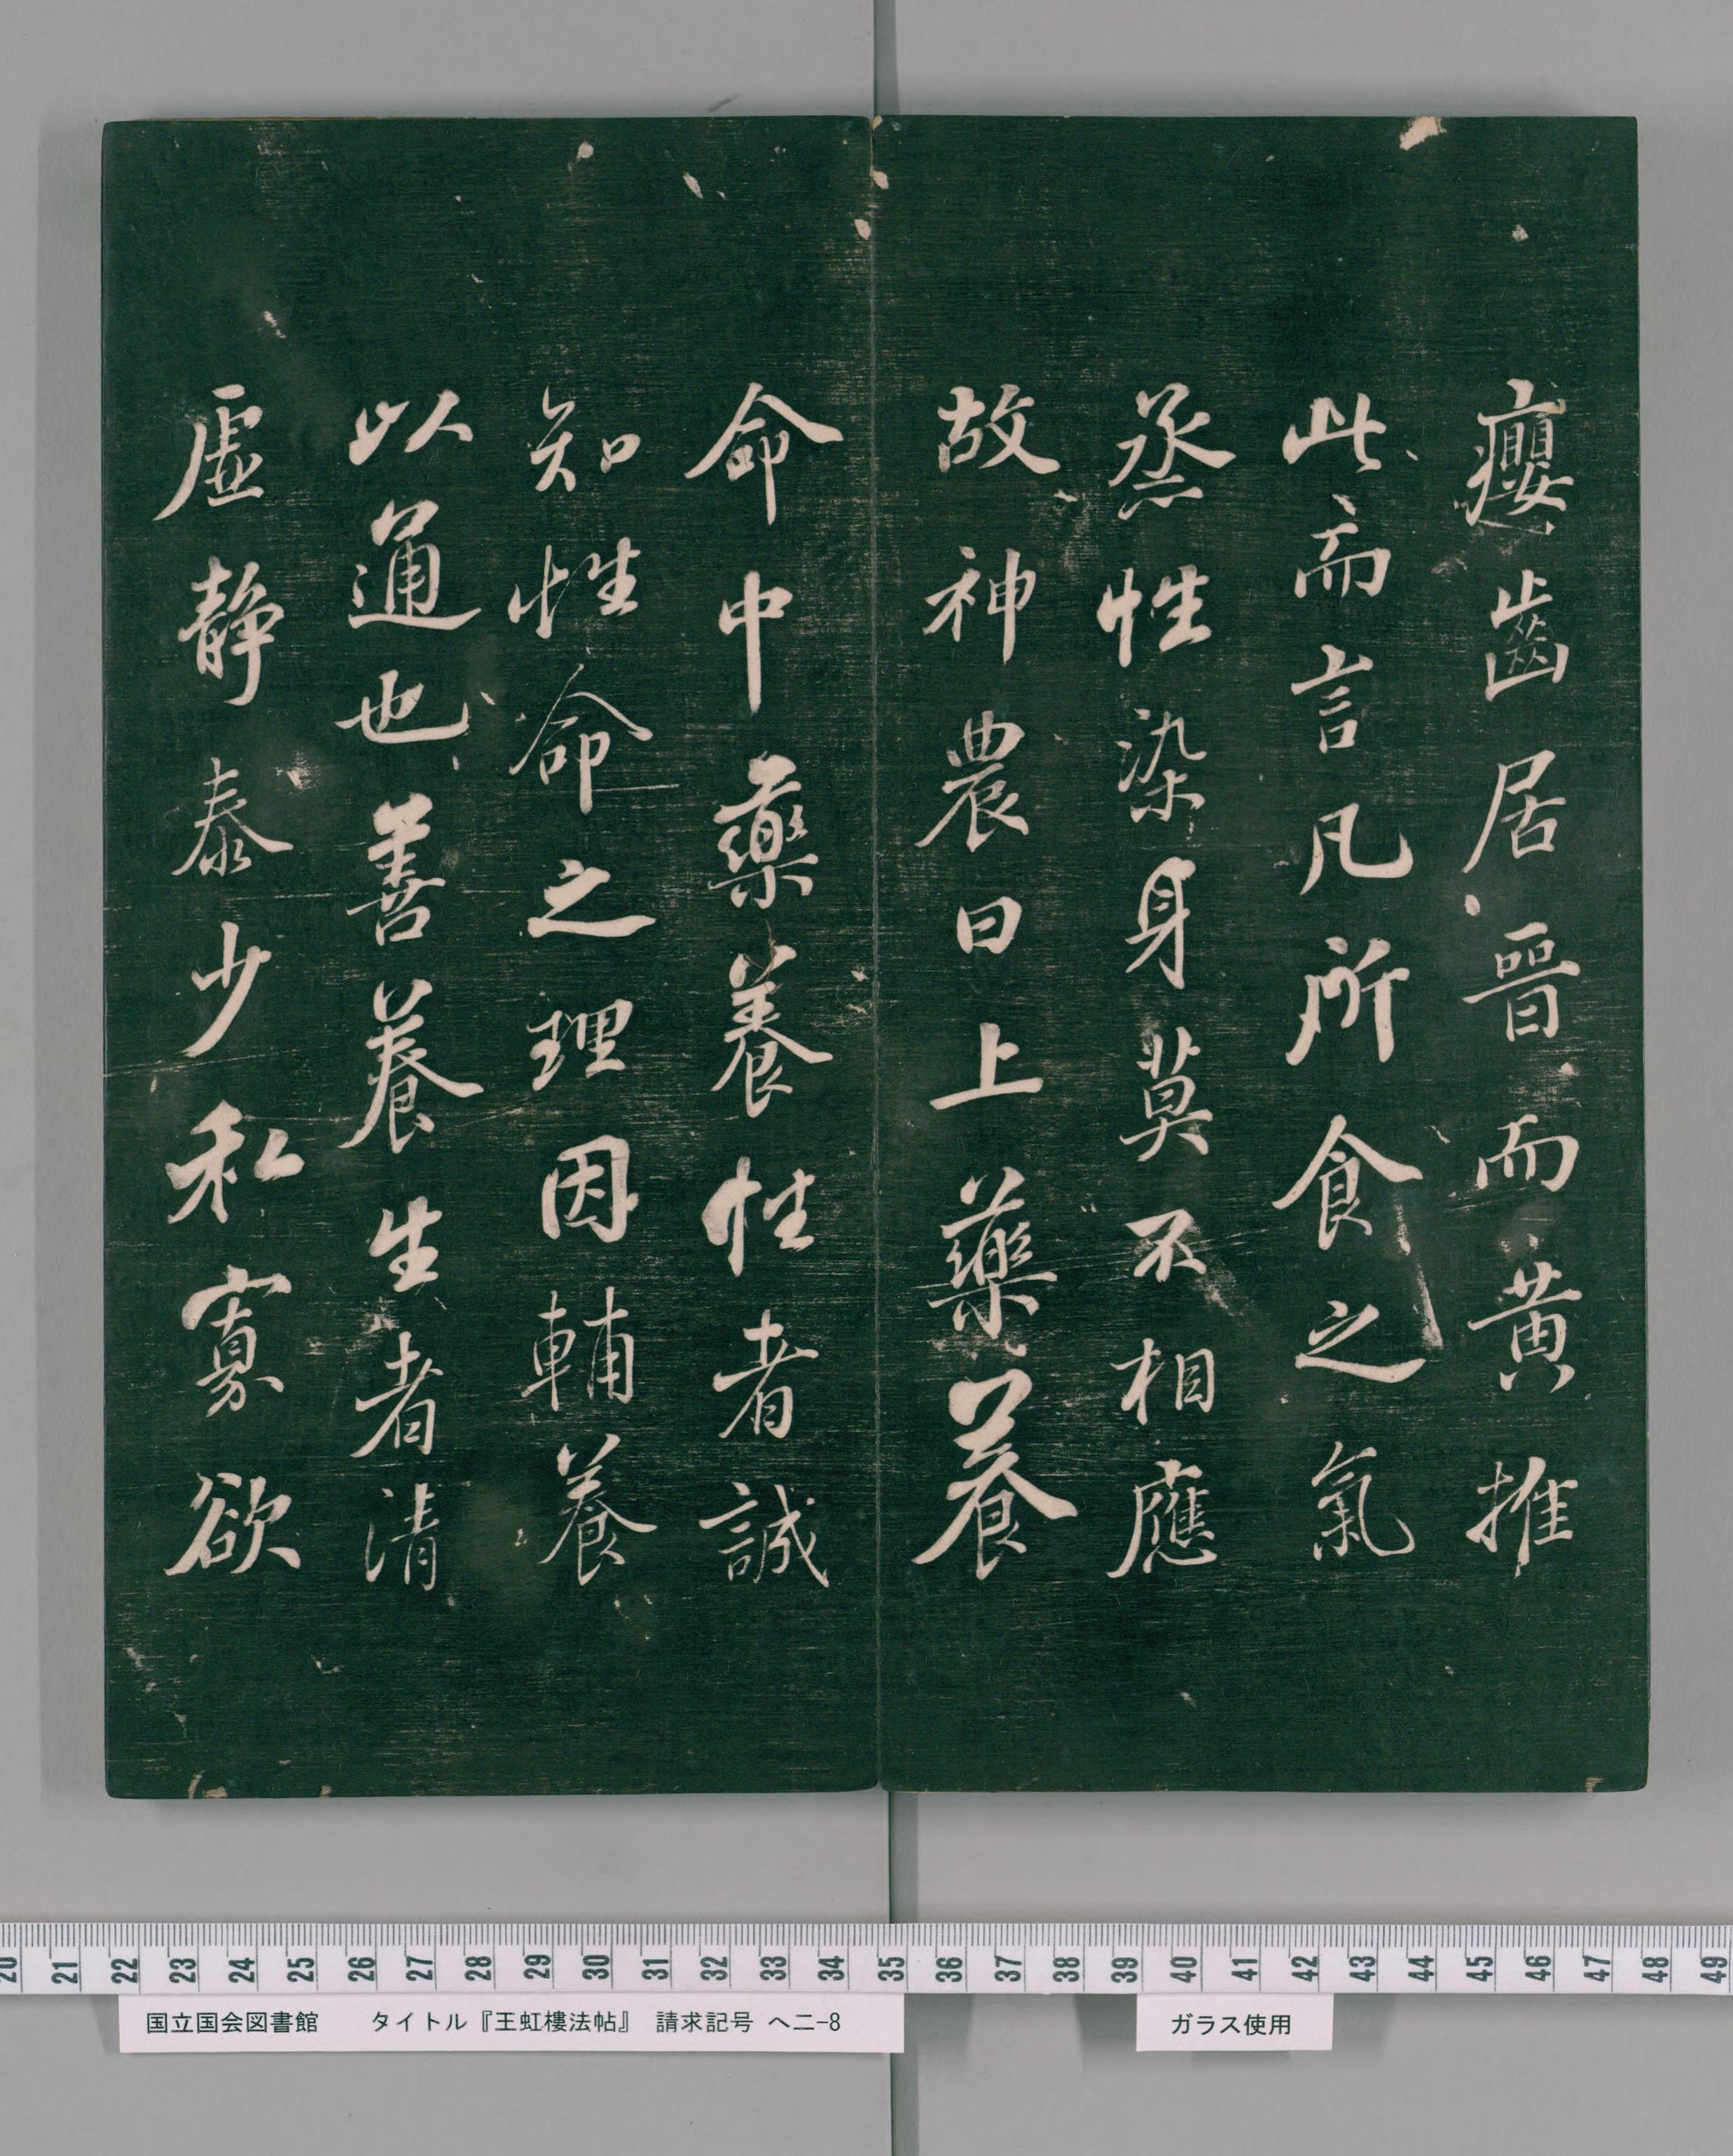 癭齒居晉而黃推
此而言凡所食之氣
烝性染身莫不相應
故神農曰上藥養
命中藥養性者誠
知性命之理因輔養
以通也善養生者清
虛靜泰少私寡欲
20 21 22 23 24 25 26 27 28 29 30 31 32 33 34 35 36 37 38 39 40 41 42 43 44 45 46 47 48 49
国立国会図書館 タイトル『王虹樓法帖』 請求記号 へ二-8
ガラス使用